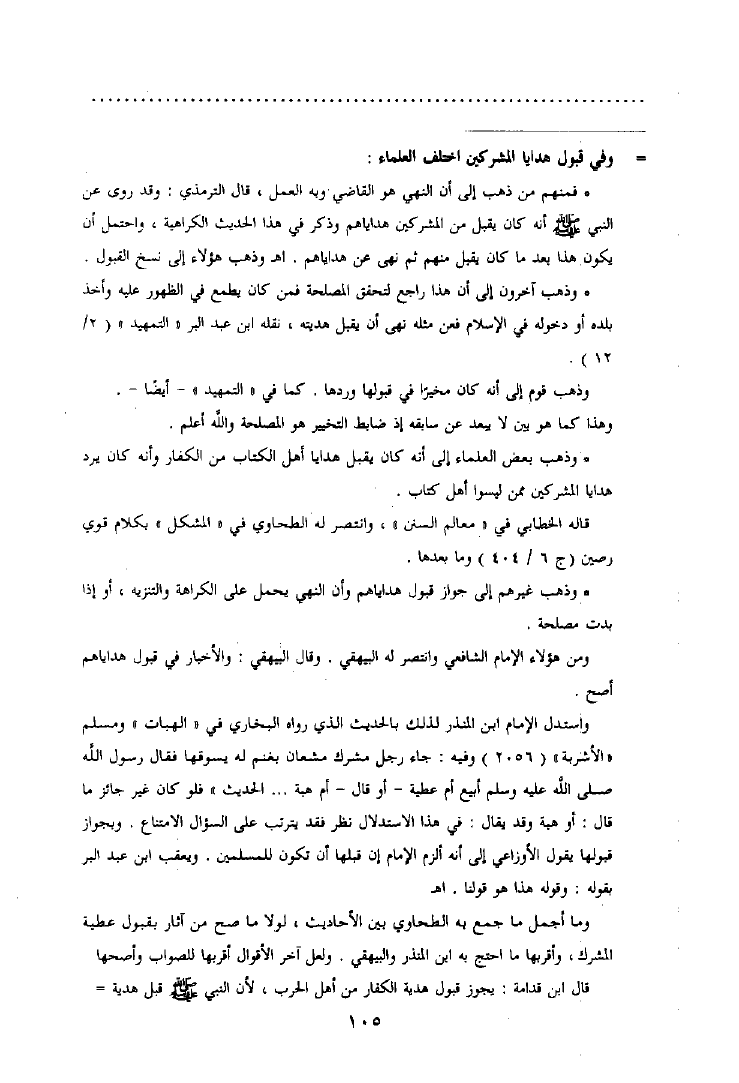 = وفي قبول هدايا المشركين اختلف العلماء :
* فمنهم من ذهب إلى أن النهي هو القاضي وبه العمل ، قال الترمذي : وقد روى عن
النبي ﷺ أنه كان يقبل من المشركين هداياهم وذكر في هذا الحديث الكراهية ، واحتمل أن
يكون هذا بعد ما كان يقبل منهم ثم نهى عن هداياهم . اهـ وذهب هؤلاء إلى نسخ القبول .
* وذهب آخرون إلى أن هذا راجع لتحقق المصلحة فمن كان يطمع في الظهور عليه وأخذ
بلده أو دخوله في الإسلام فعن مثله نهى أن يقبل هديته ، نقله ابن عبد البر « التمهيد » ( ٢/
١٢ ) .
وذهب قوم إلى أنه كان مخيرًا في قبولها وردها . كما في « التمهيد » - أيضًا - .
وهذا كما هو بين لا يبعد عن سابقه إذ ضابط التخيير هو المصلحة واللَّه أعلم .
* وذهب بعض العلماء إلى أنه كان يقبل هدايا أهل الكتاب من الكفار وأنه كان يرد
هدايا المشركين ممن ليسوا أهل كتاب .
قاله الخطابي في « معالم السنن » ، وانتصر له الطحاوي في « المشكل » بكلام قوي
رصين (ج ٦ / ٤٠٤ ) وما بعدها .
* وذهب غيرهم إلى جواز قبول هداياهم وأن النهي يحمل على الكراهة والتنزيه ، أو إذا
بدت مصلحة .
ومن هؤلاء الإمام الشافعي وانتصر له البيهقي . وقال البيهقي : والأخبار في قبول هداياهم
أصح .
واستدل الإمام ابن المنذر لذلك بالحديث الذي رواه البخاري في « الهبات » ومسلم
«الأشربة» ( ٢٠٥٦ ) وفيه : جاء رجل مشرك مشعان بغنم له يسوقها فقال رسول اللَّه
صلى اللَّه عليه وسلم أبيع أم عطية - أو قال - أم هبة ... الحديث » فلو كان غير جائز ما
قال : أو هبة وقد يقال : في هذا الاستدلال نظر فقد يترتب على السؤال الامتناع . وبجواز
قبولها يقول الأوزاعي إلى أنه ألزم الإمام إن قبلها أن تكون للمسلمين . ويعقب ابن عبد البر
بقوله : وقوله هذا هو قولنا . اهـ
وما أجمل ما جمع به الطحاوي بين الأحاديث ، لولا ما صح من آثار بقبول عطية
المشرك ، وأقربها ما احتج به ابن المنذر والبيهقي . ولعل آخر الأقوال أقربها للصواب وأصحها
قال ابن قدامة : يجوز قبول هدية الكفار من أهل الحرب ، لأن النبي ﷺ قبل هدية =
١٠٥